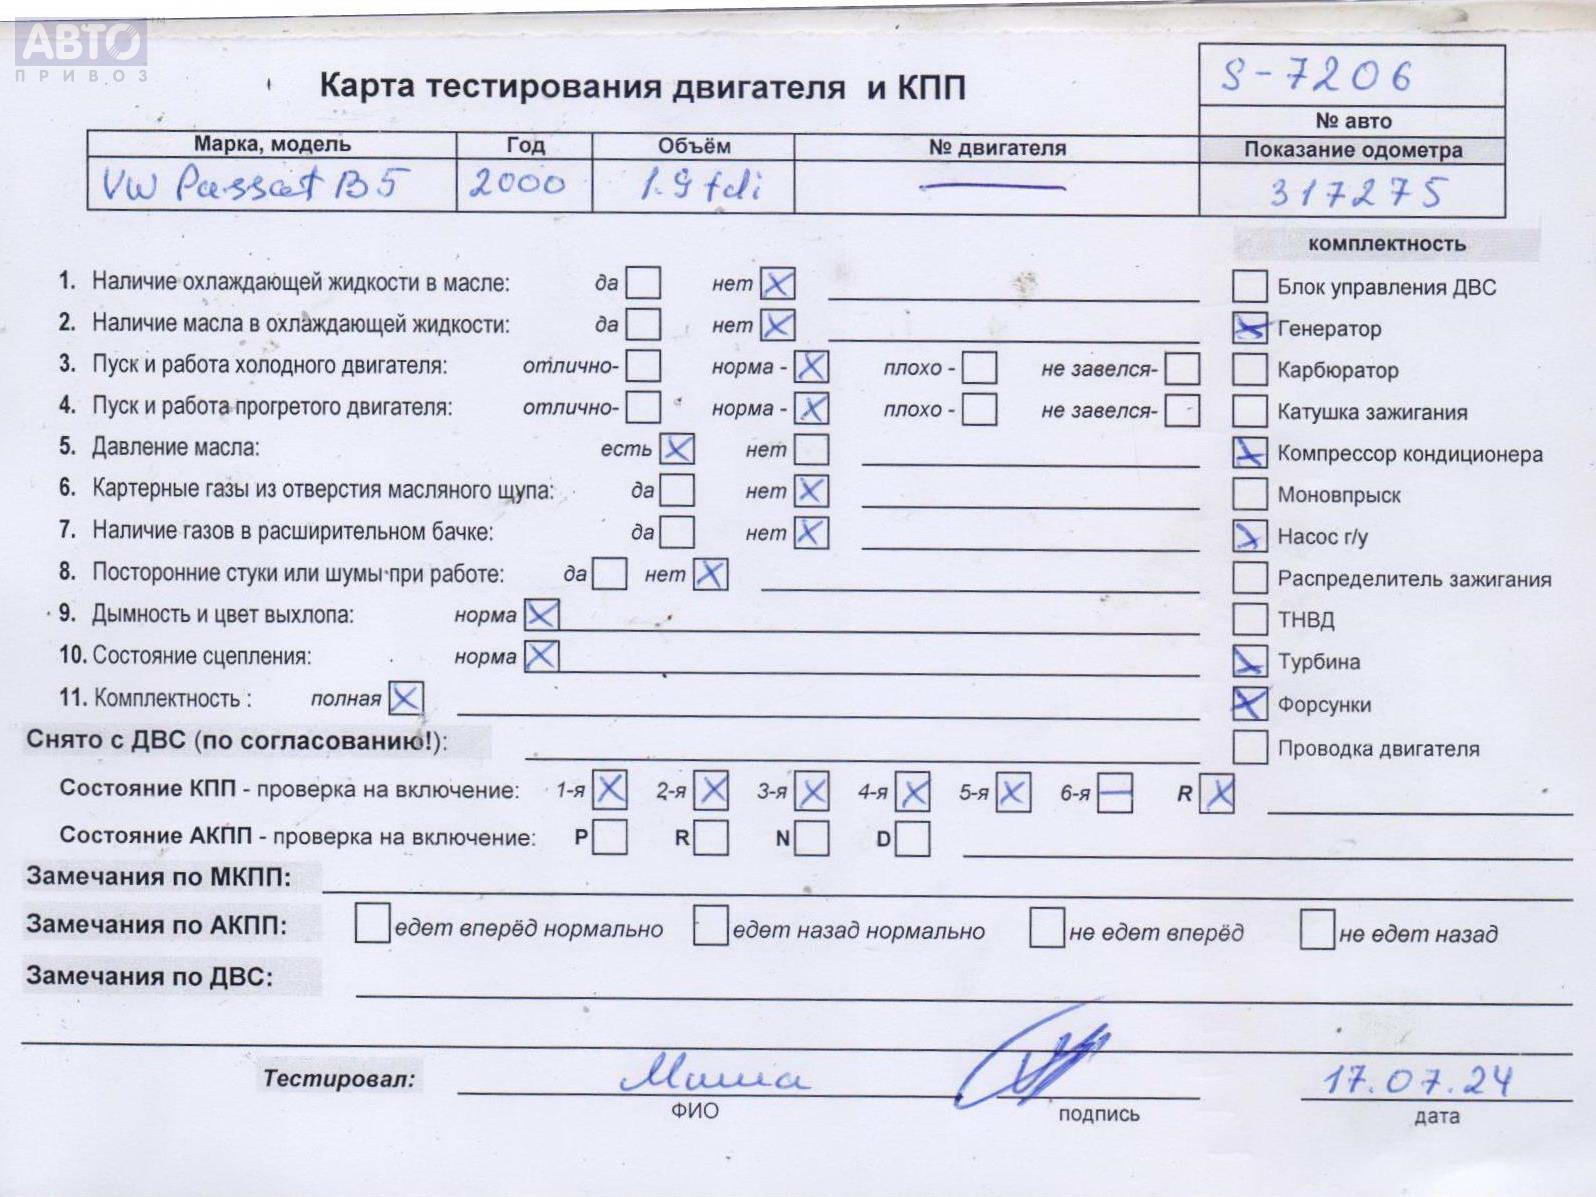 АВТО
ПРИВОЗ
Карта тестирования двигателя и КПП
S-7206
№ авто
Марка, модель Год Объём № двигателя Показание одометра
VW Passat B5 2000 1.9 tdi — 317275
комплектность
1. Наличие охлаждающей жидкости в масле: да нет X
Блок управления ДВС
2. Наличие масла в охлаждающей жидкости: да нет X
X Генератор
3. Пуск и работа холодного двигателя: отлично- норма - X плохо - не завелся-
Карбюратор
4. Пуск и работа прогретого двигателя: отлично- норма - X плохо - не завелся-
Катушка зажигания
5. Давление масла: есть X нет
X Компрессор кондиционера
6. Картерные газы из отверстия масляного щупа: да нет X
Моновпрыск
7. Наличие газов в расширительном бачке: да нет X
X Насос г/у
8. Посторонние стуки или шумы при работе: да нет X
Распределитель зажигания
9. Дымность и цвет выхлопа: норма X
ТНВД
10. Состояние сцепления: норма X
X Турбина
11. Комплектность : полная X
X Форсунки
Снято с ДВС (по согласованию!):
Проводка двигателя
Состояние КПП - проверка на включение: 1-я X 2-я X 3-я X 4-я X 5-я X 6-я — R X
Состояние АКПП - проверка на включение: P R N D
Замечания по МКПП:
Замечания по АКПП: едет вперёд нормально едет назад нормально не едет вперёд не едет назад
Замечания по ДВС:
Тестировал: Миша 17.07.24
ФИО подпись дата